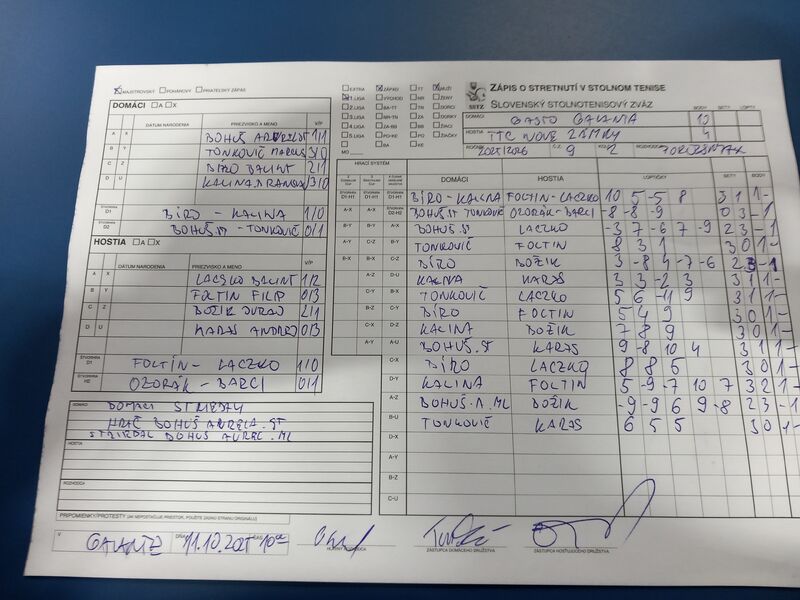 MAJSTROVSKÝ POHÁROVÝ PRIATEĽSKÝ ZÁPAS
DOMÁCI A X
DÁTUM NARODENIA PRIEZVISKO A MENO V/P
A X BOHUŠ 1/1
B Y TONKOVIČ 3/0
C Z BÍRO BALINT 2/1
D U KALINA 3/0
D1 BÍRO - KALINA 1/0
D2 BOHUŠ - TONKOVIČ 0/1
HOSTIA A X
DÁTUM NARODENIA PRIEZVISKO A MENO V/P
A X LACZKO BALINT 1/2
B Y FOLTIN FILIP 0/3
C Z BOŽIK 2/1
D U KARAS 0/3
D1 FOLTÍN - LACZKO 1/0
OZORÁK - BARCI 0/1
DOMÁCI DOMACI STRIEDAY
HRÁČ BOHUŠ AURELA.ST
STRIEDAL BOHUŠ AUREL.ML
HOSTIA
ROZHODCA
PRIPOMIENKY/PROTESTY (AK NEPOSTAČUJE PRIESTOR, POUŽITE ZADNÚ STRANU ORIGINÁLU)
V 11.10.2025
HLAVNÝ ROZHODCA ZÁSTUPCA DOMÁCEHO DRUŽSTVA ZÁSTUPCA HOSŤUJÚCEHO DRUŽSTVA
EXTRA ZÁPAD TT MUŽI
1.LIGA VÝCHOD NR ŽENY
2.LIGA BA-TT TN DORCI
3.LIGA NR-TN ZA
4.LIGA ZA-BB BB ŽIACI
5.LIGA PO-KE PO ŽIAČKY
MO BA KE
SSTZ
ZÁPIS O STRETNUTÍ V STOLNOM TENISE
SLOVENSKÝ STOLNOTENISOVÝ ZVÄZ
BODY SETY LOPTY
DOMÁCI GASTO GALANTA 10
HOSTIA TTC NOVÉ ZÁMKY 4
ROČNÍK 2025/2026 Č. 9 KOLO 2 ROZHODCA
HRACÍ SYSTÉM DOMÁCI HOSTIA LOPTIČKY SETY BODY
D1-H1 BÍRO - KALINA FOLTIN - LACZKO 10 5 -5 8 3 1 1-
A-X D2-H2 BOHUŠ TONKOVIČ OZORÁK - BARCI -8 -8 -9 0 3 -1
B-Y B-Y A-X BOHUŠ.ST LACZKO -3 7 -6 7 -9 2 3 -1
A-Y C-Z B-Y TONKOVIČ FOLTIN 8 3 1 3 0 1-
B-X B-X C-Z BÍRO BOŽIK 3 -8 4 -7 -6 2 3 -1
A-Z D-U KALINA KARAS 3 3 -2 3 3 1 1-
C-Y B-X TONKOVIČ LACZKO 5 6 -11 9 3 1 1-
B-Z C-Y BÍRO FOLTIN 5 4 9 3 0 1-
C-X D-Z KALINA BOŽIK 7 8 9 3 0 1-
A-Y A-U BOHUŠ.ST KARAS 9 -8 10 4 3 1 1-
C-X BÍRO LACZKO 8 8 6 3 0 1-
D-Y KALINA FOLTIN 5 -9 -7 10 7 3 2 1-
A-Z BOHUŠ.A.ML BOŽIK -9 -9 6 9 -8 2 3 -1
B-U TONKOVIČ KARAS 6 5 5 3 0 1-
D-X
A-Y
B-Z
C-U